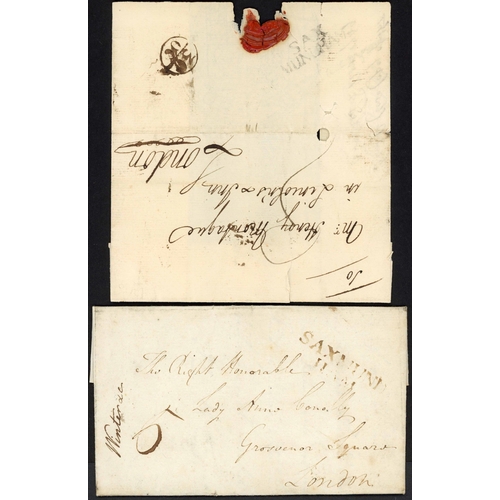 SAX
MUNDH
To
Mr. Henry Montague
in Lincolns Inn
London
SAXMUND
The Right Honorable
Lady Anne Conolly
Grosvenor Square
London